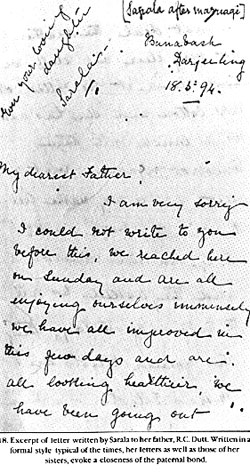 [Sarala after marriage]
from your loving
daughter
Sarala
Banabash
Darjeeling
18.5.94.
My dearest Father
I am very sorry
I could not write to you
before this, we reached here
on Sunday and are all
enjoying ourselves immensely
we have all improved in
this few days and are
all looking healthier, we
have been going out
18. Excerpt of letter written by Sarala to her father, R.C. Dutt. Written in a
formal style typical of the times, her letters as well as those of her
sisters, evoke a closeness of the paternal bond.